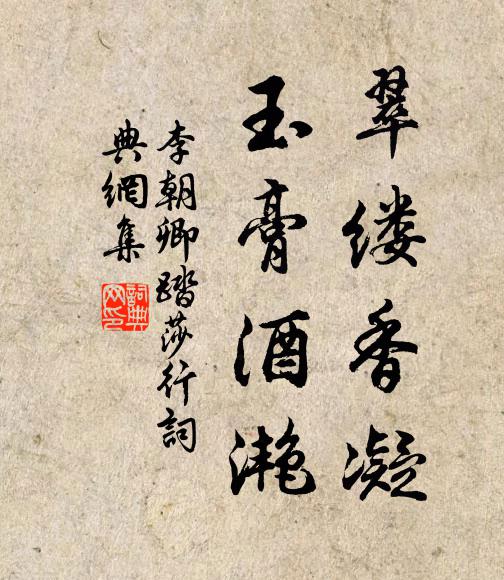 翠缕香凝
玉膏酒滟
李朝卿踏莎行詞
典網集
詞典網印